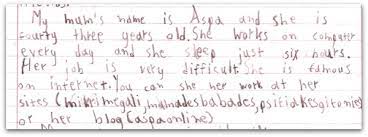 My mum's name is Aspa and she is
fourty three years old. She works on computer
every day and she sleep just six hours.
Her job is very difficult. She is famous
on internet. You can she her work at her
sites (mikrimegali, mamadesbabades, psitiakesgitonies)
or her blog (aspaonline)